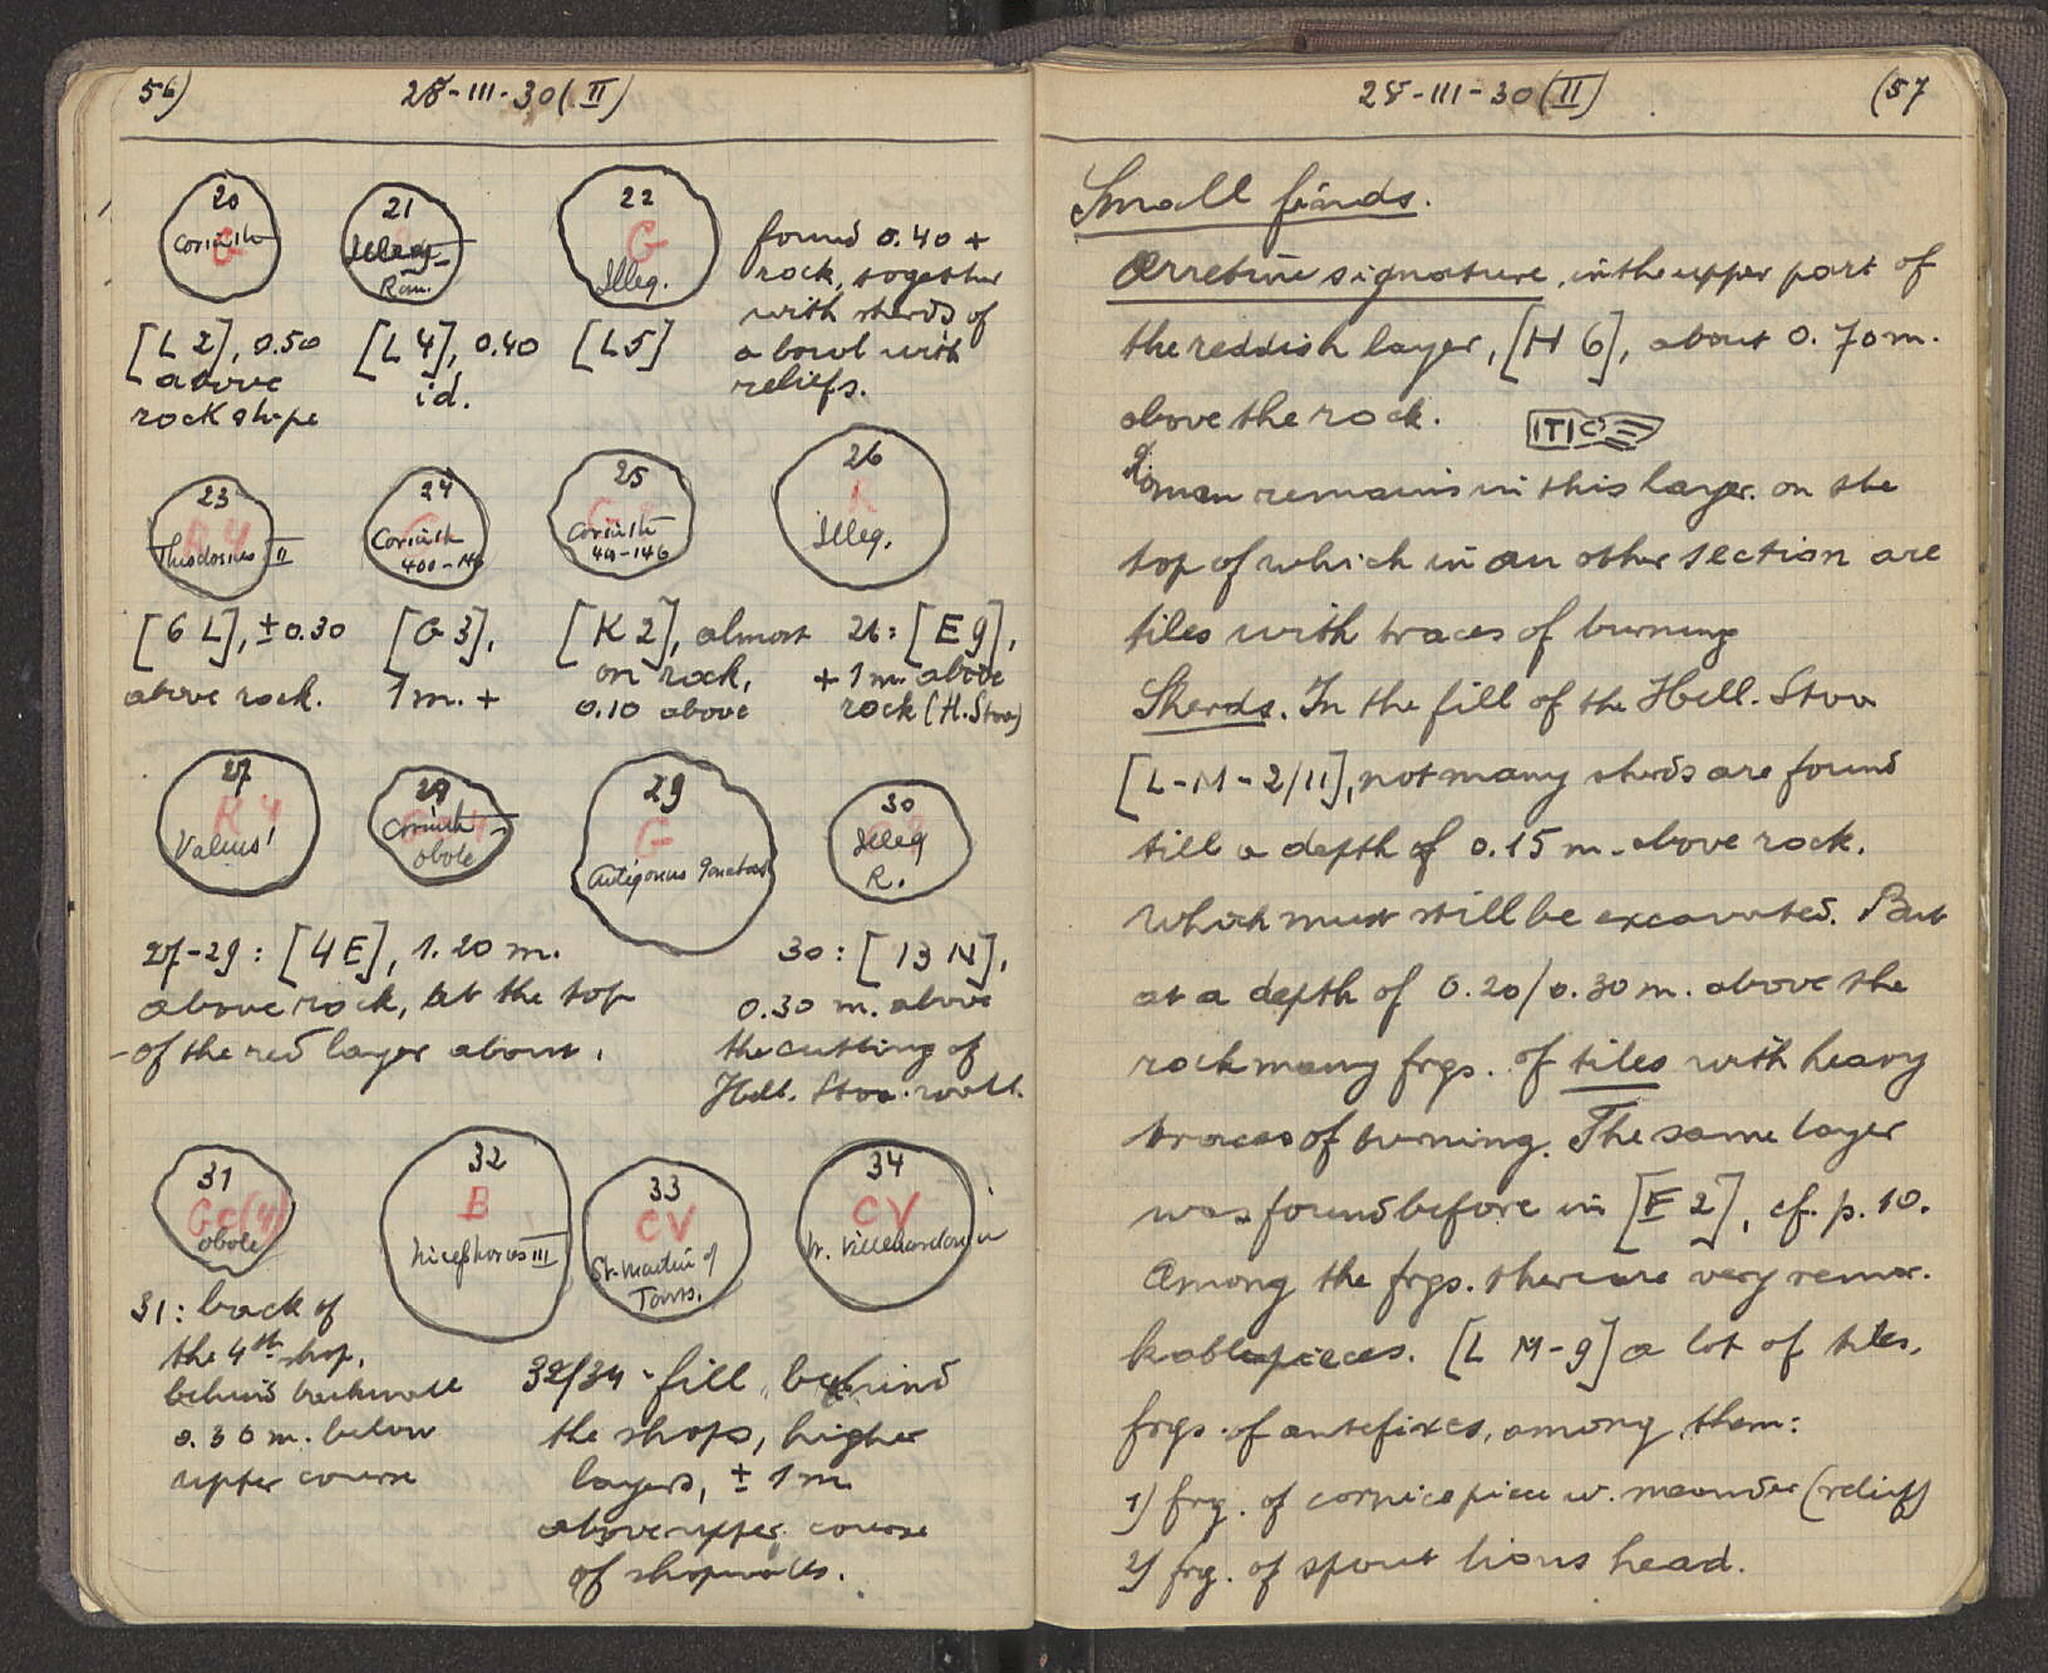 56)
28-III-30 (II)
20
Corinth
G
[L 2], 0.50
above
rock shipe
21
Illeg.
Rom.
[L 4], 0.40
id.
22
G
Illeg.
[L 5]
found 0.40 +
rock, together
with sherds of
a bowl with
reliefs.
23
R 4
Theodosius II
[6 L], ± 0.30
above rock.
24
G
Corinth
400-146
[G 3],
1 m. +
25
G
Corinth
400-146
[K 2], almost
on rock,
0.10 above
26
R
Illeg.
26: [E 9],
+ 1 m. above
rock (H. Stoa)
27
R 4
Valens!
28
Corinth
obole
29
G
Antigonus Gonatas
27-29: [4 E], 1.20 m.
above rock, at the top
of the red layer about.
30
Illeg
R.
30: [13 N],
0.30 m. above
the cutting of
Hell. Stoa wall.
31
Gc(4)
obole
31: back of
the 4th shop,
behind backwall
0.30 m. below
upper course
32
B
Nicephorus III
33
CV
St. Martin of
Tours.
34
CV
W. Villehardouin
32/34 - fill, behind
the shops, higher
layers, ± 1 m
above upper course
of shopwalls.
28-III-30 (II)
(57
Small finds.
Arretine signature, in the upper part of
the reddish layer, [H 6], about 0.70 m.
above the rock.
Roman remains in this layer. on the
top of which in an other section are
tiles with traces of burning
Sherds. In the fill of the Hell. Stoa
[L-M-2/11], not many sherds are found
till a depth of 0.15 m. above rock.
which must still be excavated. But
at a depth of 0.20/0.30 m. above the
rock many frgs. of tiles with heavy
traces of burning. The same layer
was found before in [E 2], cf. p. 10.
Among the frgs. there are very remar-
kable pieces. [L M-9] a lot of tiles,
frgs. of antefixes, among them:
1) frg. of cornice piece w. meander (relief)
2) frg. of spout lions head.